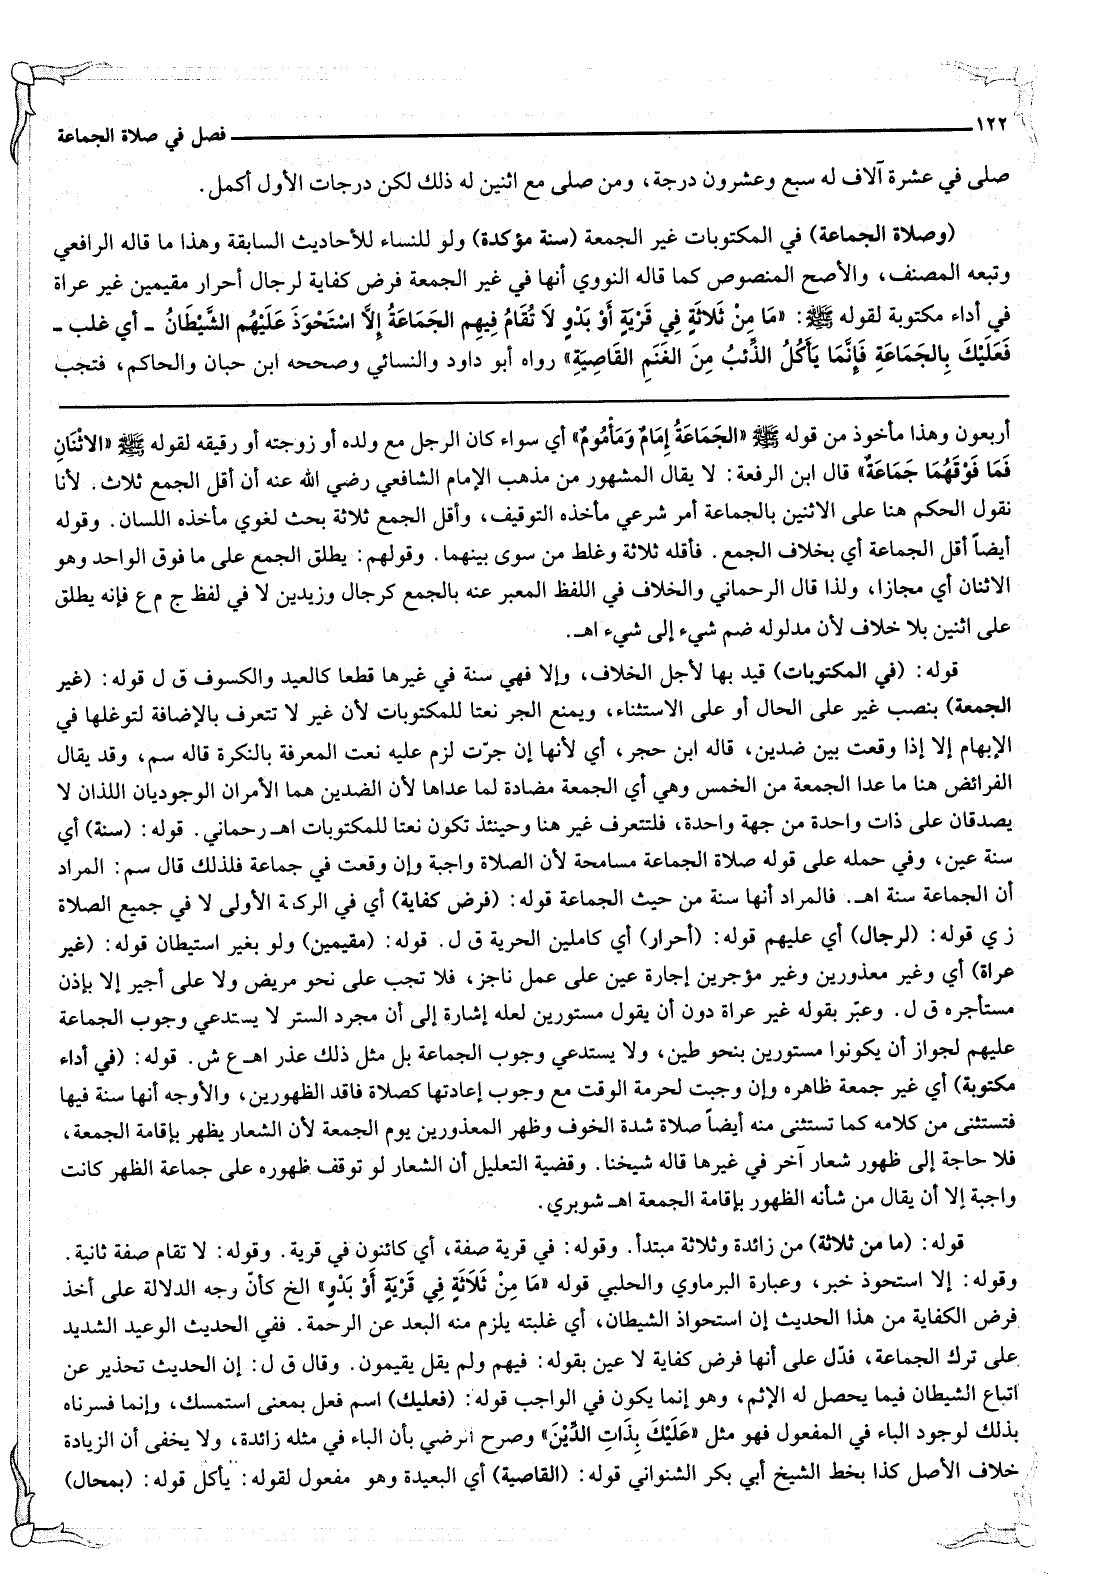 ١٢٢ فصل في صلاة الجماعة
صلى في عشرة آلاف له سبع وعشرون درجة، ومن صلى مع اثنين له ذلك لكن درجات الأول أكمل.
(وصلاة الجماعة) في المكتوبات غير الجمعة (سنة مؤكدة) ولو للنساء للأحاديث السابقة وهذا ما قاله الرافعي
وتبعه المصنف، والأصح المنصوص كما قاله النووي أنها في غير الجمعة فرض كفاية لرجال أحرار مقيمين غير عراة
في أداء مكتوبة لقوله ﷺ: «مَا مِنْ ثَلَاثَةٍ فِي قَرْيَةٍ أَوْ بَدْوٍ لَا تُقَامُ فِيهِم الجَمَاعَةُ إِلَّا اسْتَحْوَذَ عَلَيْهُم الشَّيْطَانُ ـ أي غلب ـ
فَعَلَيْكَ بِالجَمَاعَةِ فَإِنَّمَا يَأْكُلُ الذِّئْبُ مِنَ الغَنَمِ القَاصِيَةِ» رواه أبو داود والنسائي وصححه ابن حبان والحاكم، فتجب
أربعون وهذا مأخوذ من قوله ﷺ «الجَمَاعَةُ إِمَامٌ وَمَأْمُومٌ» أي سواء كان الرجل مع ولده أو زوجته أو رقيقه لقوله ﷺ «الاثْنَانِ
فَمَا فَوْقَهُمَا جَمَاعَةٌ» قال ابن الرفعة: لا يقال المشهور من مذهب الإمام الشافعي رضي الله عنه أن أقل الجمع ثلاث. لأنا
نقول الحكم هنا على الاثنين بالجماعة أمر شرعي مأخذه التوقيف، وأقل الجمع ثلاثة بحث لغوي مأخذه اللسان. وقوله
أيضاً أقل الجماعة أي بخلاف الجمع. فأقله ثلاثة وغلط من سوى بينهما. وقولهم: يطلق الجمع على ما فوق الواحد وهو
الاثنان أي مجازا، ولذا قال الرحماني والخلاف في اللفظ المعبر عنه بالجمع كرجال وزيدين لا في لفظ ج م ع فإنه يطلق
على اثنين بلا خلاف لأن مدلوله ضم شيء إلى شيء اهـ.
قوله: (في المكتوبات) قيد بها لأجل الخلاف، وإلا فهي سنة في غيرها قطعا كالعيد والكسوف ق ل قوله: (غير
الجمعة) بنصب غير على الحال أو على الاستثناء، ويمنع الجر نعتا للمكتوبات لأن غير لا تتعرف بالإضافة لتوغلها في
الإبهام إلا إذا وقعت بين ضدين، قاله ابن حجر، أي لأنها إن جرّت لزم عليه نعت المعرفة بالنكرة قاله سم، وقد يقال
الفرائض هنا ما عدا الجمعة من الخمس وهي أي الجمعة مضادة لما عداها لأن الضدين هما الأمران الوجوديان اللذان لا
يصدقان على ذات واحدة من جهة واحدة، فلتتعرف غير هنا وحينئذ تكون نعتا للمكتوبات اهـ رحماني. قوله: (سنة) أي
سنة عين، وفي حمله على قوله صلاة الجماعة مسامحة لأن الصلاة واجبة وإن وقعت في جماعة فلذلك قال سم: المراد
أن الجماعة سنة اهـ. فالمراد أنها سنة من حيث الجماعة قوله: (فرض كفاية) أي في الركعة الأولى لا في جميع الصلاة
ز ي قوله: (لرجال) أي عليهم قوله: (أحرار) أي كاملين الحرية ق ل. قوله: (مقيمين) ولو بغير استيطان قوله: (غير
عراة) أي وغير معذورين وغير مؤجرين إجارة عين على عمل ناجز، فلا تجب على نحو مريض ولا على أجير إلا بإذن
مستأجره ق ل. وعبّر بقوله غير عراة دون أن يقول مستورين لعله إشارة إلى أن مجرد الستر لا يستدعي وجوب الجماعة
عليهم لجواز أن يكونوا مستورين بنحو طين، ولا يستدعي وجوب الجماعة بل مثل ذلك عذر اهـ ع ش. قوله: (في أداء
مكتوبة) أي غير جمعة ظاهره وإن وجبت لحرمة الوقت مع وجوب إعادتها كصلاة فاقد الظهورين، والأوجه أنها سنة فيها
فتستثنى من كلامه كما تستثنى منه أيضاً صلاة شدة الخوف وظهر المعذورين يوم الجمعة لأن الشعار يظهر بإقامة الجمعة،
فلا حاجة إلى ظهور شعار آخر في غيرها قاله شيخنا. وقضية التعليل أن الشعار لو توقف ظهوره على جماعة الظهر كانت
واجبة إلا أن يقال من شأنه الظهور بإقامة الجمعة اهـ شوبري.
قوله: (ما من ثلاثة) من زائدة وثلاثة مبتدأ. وقوله: في قرية صفة، أي كائنون في قرية. وقوله: لا تقام صفة ثانية.
وقوله: إلا استحوذ خبر، وعبارة البرماوي والحلبي قوله «مَا مِنْ ثَلَاثَةٍ فِي قَرْيَةٍ أَوْ بَدْوٍ» الخ كأنّ وجه الدلالة على أخذ
فرض الكفاية من هذا الحديث إن استحواذ الشيطان، أي غلبته يلزم منه البعد عن الرحمة. ففي الحديث الوعيد الشديد
على ترك الجماعة، فدّل على أنها فرض كفاية لا عين بقوله: فيهم ولم يقل يقيمون. وقال ق ل: إن الحديث تحذير عن
اتباع الشيطان فيما يحصل له الإثم، وهو إنما يكون في الواجب قوله: (فعليك) اسم فعل بمعنى استمسك، وإنما فسرناه
بذلك لوجود الباء في المفعول فهو مثل «عَلَيْكَ بِذَاتِ الدِّيْنَ» وصرح الرضي بأن الباء في مثله زائدة، ولا يخفى أن الزيادة
خلاف الأصل كذا بخط الشيخ أبي بكر الشنواني قوله: (القاصية) أي البعيدة وهو مفعول لقوله: يأكل قوله: (بمحال)